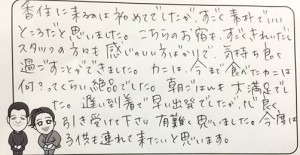 香住に来るのは初めてでしたが、すごく素朴でいい
ところだと思いました。こちらのお宿も、すごくきれいだし
スタッフの方々も感じのいい方ばかりで、気持ち良く
過ごすことができました。カニは、今まで食べたカニは
何だったくらい絶品でした。朝ごはんも大満足でし
た。遅い到着で早い出発でしたが、快く
引き受けて下さり有難く思いました。今度は
子供も連れて来たいと思います。